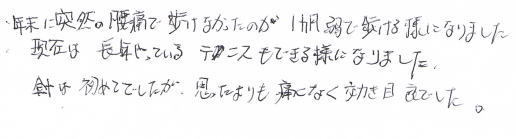 年末に突然の腰痛で歩けなかったのが1カ月弱で歩ける様になりました
現在は長年やっているテニスもできる様になりました。
針は初めてでしたが、思ったよりも痛くなく効き目良でした。